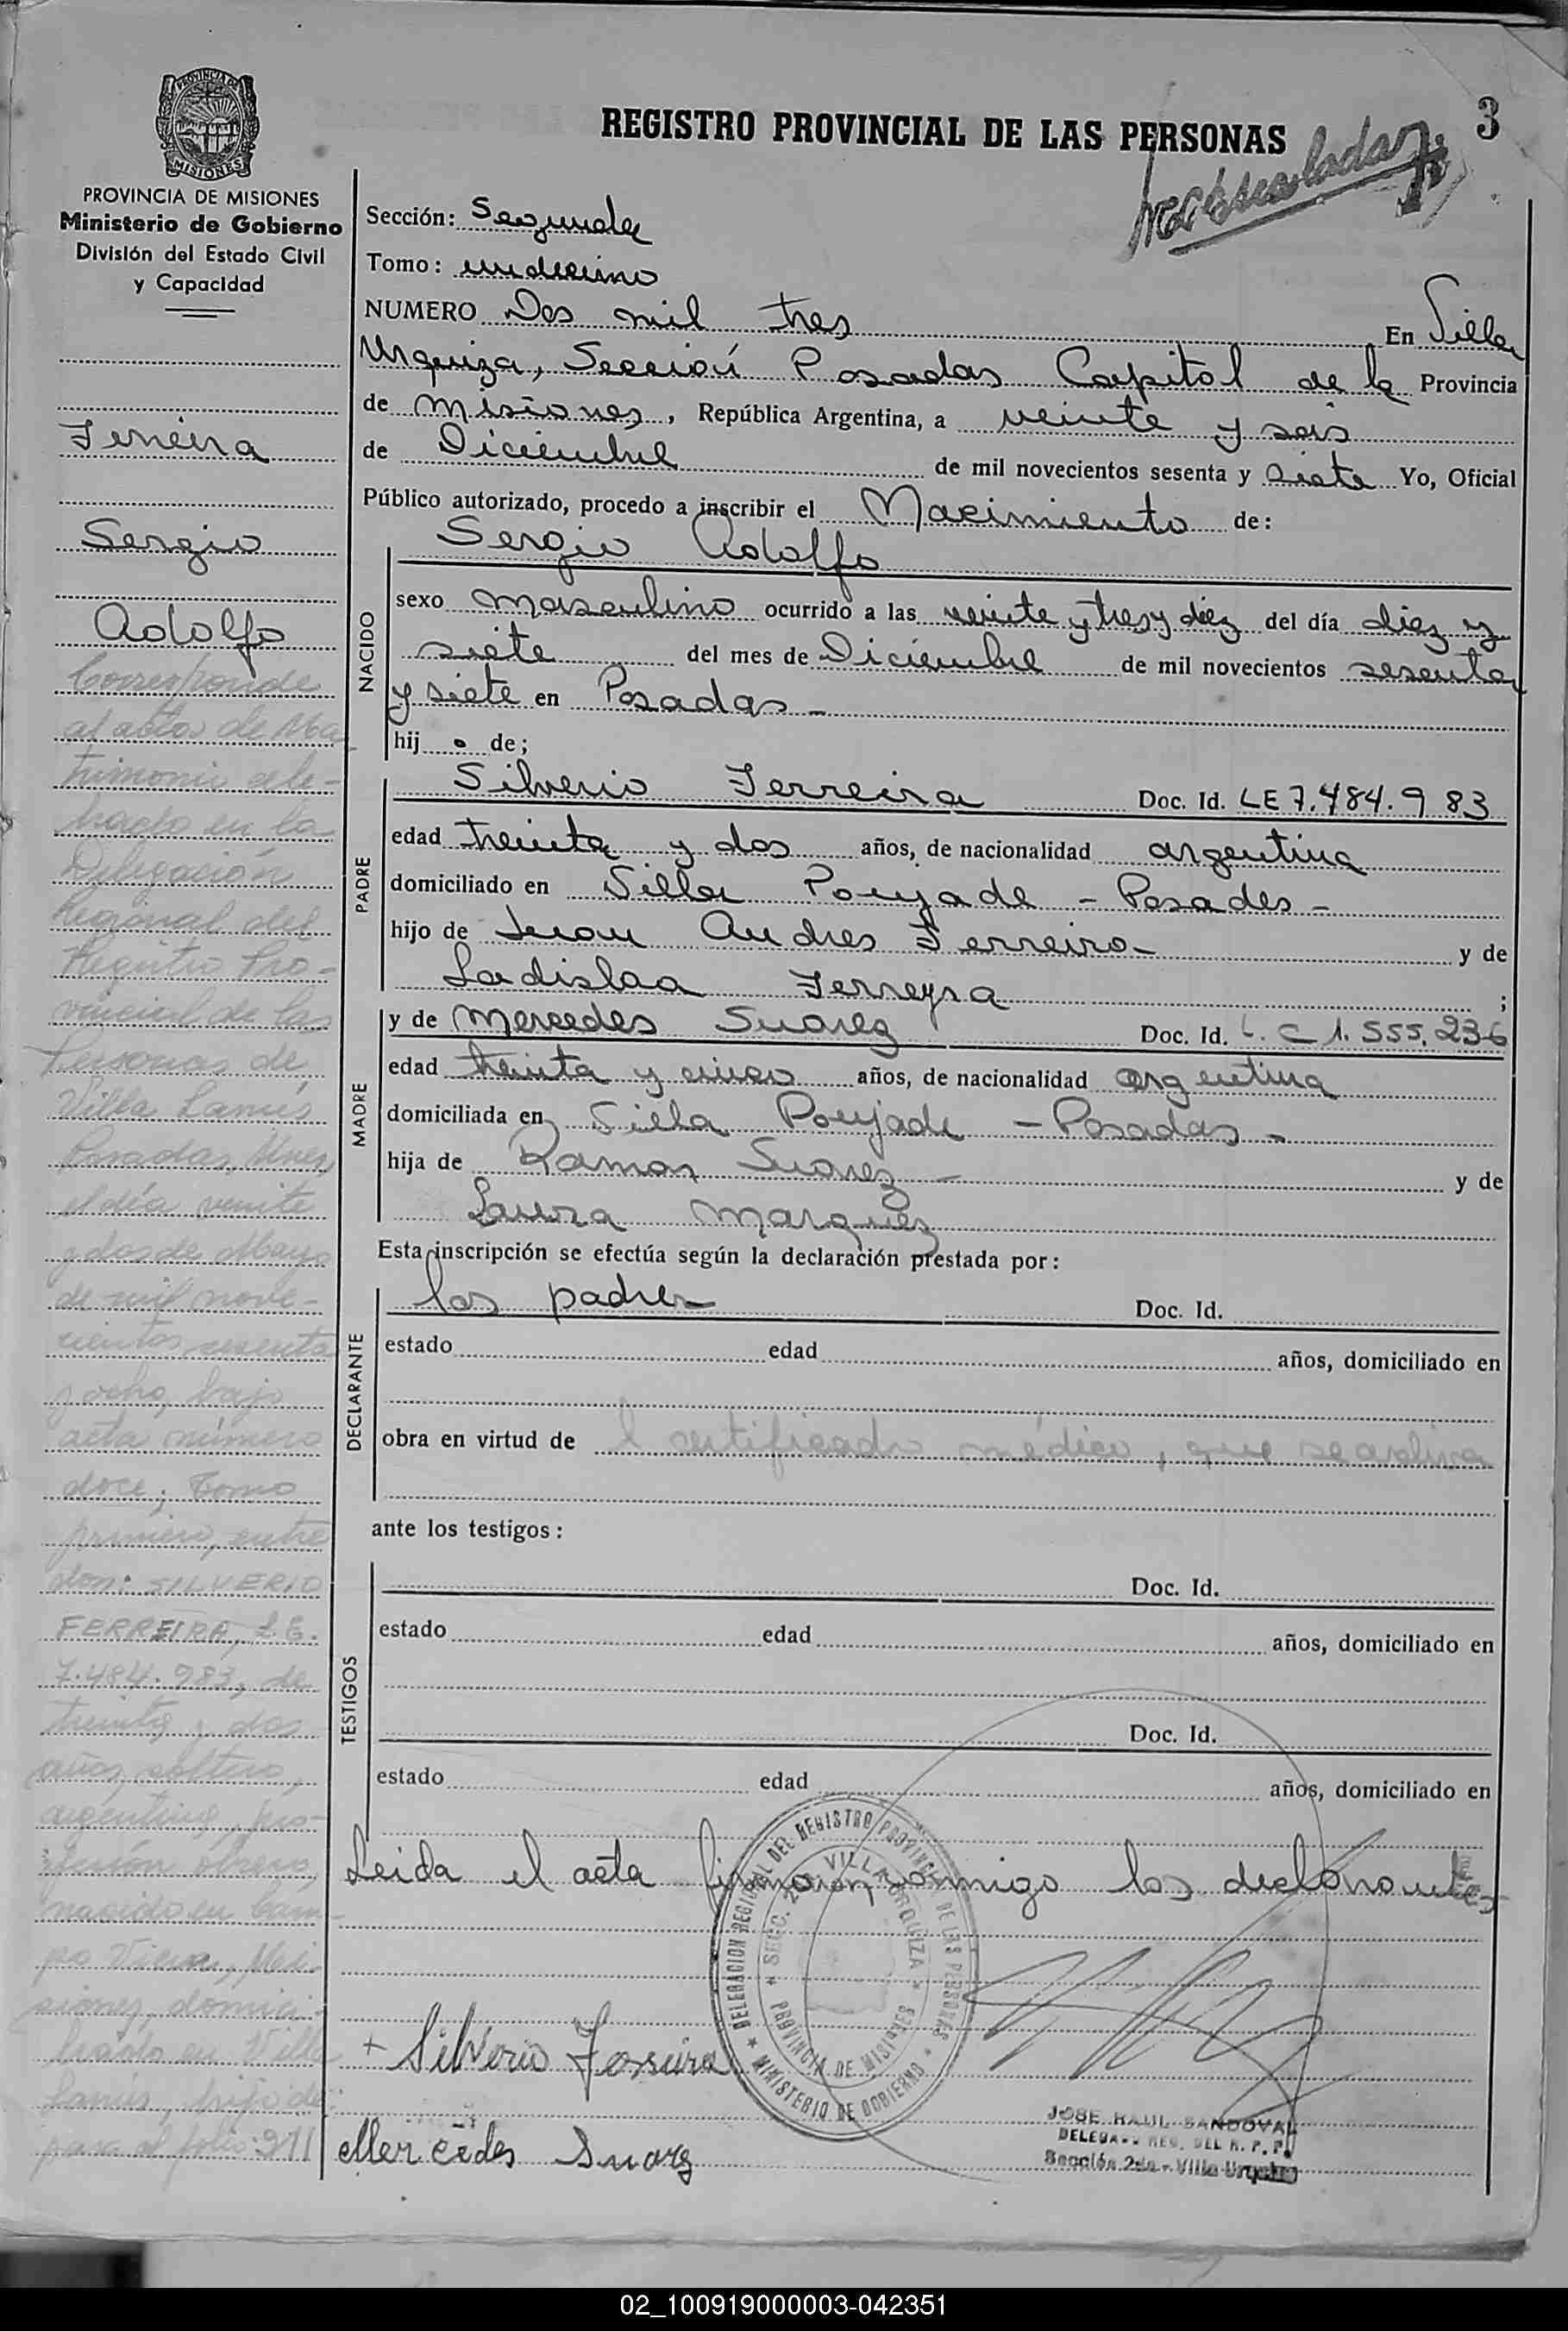 REGISTRO PROVINCIAL DE LAS PERSONAS
3
PROVINCIA DE
MISIONES
PROVINCIA DE MISIONES
Ministerio de Gobierno
División del Estado Civil
y Capacidad
Ferreira
Sergio
Adolfo
Corresponde
al acta de Ma-
trimonio cele-
brado en la
Delegación
Regional del
Registro Pro-
vincial de las
Personas de
Villa Lanús
Posadas, Mnes,
el día veinte
y dos de Mayo
de mil nove-
cientos sesenta
y ocho, bajo
acta número
doce, Tomo
primero, entre
don: SILVERIO
FERREIRA, L.E.
7.484.983, de
treinta y dos
años, soltero,
argentino, pro-
fesión obrero,
nacido en Cam-
po Viera, Misi-
ones, domici-
liado en Villa
Lanús, hijo de:
pasa al folio: 211
Sección: Segunda
Tomo: undecimo
NUMERO Dos mil tres En Villa
Urquiza, Sección Posadas Capital de la Provincia
de Misiones, República Argentina, a veinte y seis
de Diciembre de mil novecientos sesenta y siete Yo, Oficial
Público autorizado, procedo a inscribir el Nacimiento de:
NACIDO
Sergio Adolfo
sexo masculino ocurrido a las veinte y tres y diez del día diez y
siete del mes de Diciembre de mil novecientos sesenta
y siete en Posadas -
hij o de;
PADRE
Silverio Ferreira Doc. Id. LE 7.484.983
edad treinta y dos años, de nacionalidad argentina
domiciliado en Villa Poujade - Posadas -
hijo de Juan Andres Ferreira - y de
Ladislaa Ferreyra ;
MADRE
y de Mercedes Suarez Doc. Id. L.C 1.555.236
edad treinta y cinco años, de nacionalidad argentina
domiciliada en Villa Poujade - Posadas -
hija de Ramon Suarez - y de
Laura Marquez
Esta inscripción se efectúa según la declaración prestada por:
DECLARANTE
los padres Doc. Id.
estado edad años, domiciliado en
obra en virtud de l certificado médico, que se archiva
ante los testigos:
TESTIGOS
Doc. Id.
estado edad años, domiciliado en
Doc. Id.
estado edad años, domiciliado en
Leida el acta firmaron conmigo los declarantes
DELEGACION REGIONAL DEL REGISTRO PROVINCIAL DE LAS PERSONAS
* MINISTERIO DE GOBIERNO *
* SECC. 2da. VILLA URQUIZA *
PROVINCIA DE MISIONES
+ Silverio Ferreira
Mercedes Suarez
JOSE RAUL SANDOVAL
DELEGADO REG. DEL R. P. P.
Sección 2da - Villa Urquiza
02_100919000003-042351